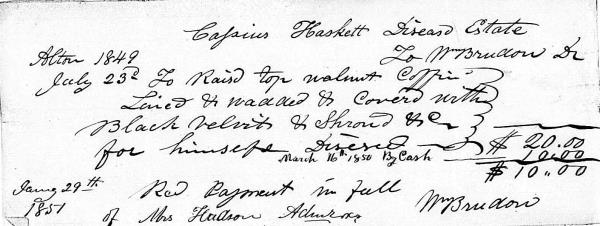 Cassius Haskett Diseasd Estate
Alton 1849 To Wm Brudon Dr
July 23d To Raisd top walnut Coffin
Lined & wadded & Coverd with
Black velvit & Shroud &c
for himselfe Diseased $ 20.00
March 16th 1850 By Cash 10.00
$ 10.00
Jany 29th 1851 Recd Payment in full
of Mrs Hudson Adminrx Wm Brudon